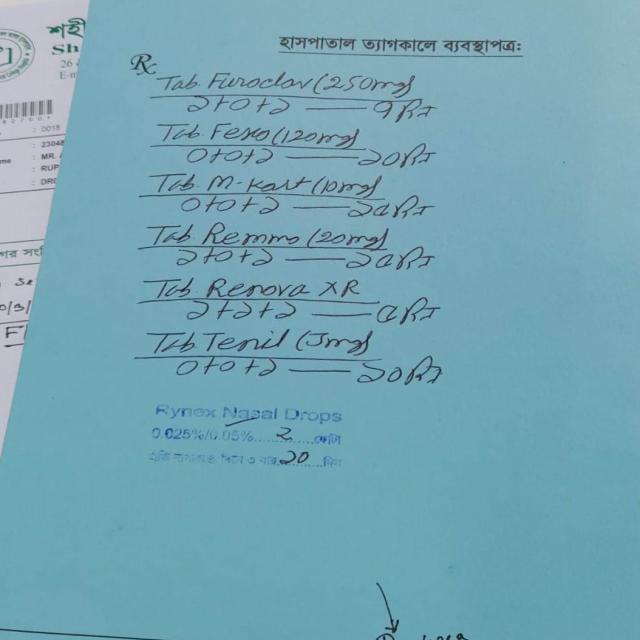 শহী
Sh
26
E-m
: 0018
: 2304
me : MR.
: RUP
: DR
হাসপাতাল ত্যাগকালে ব্যবস্থাপত্র:
Rx
Tab. Furoclav (250mg)
১+০+১ — ৭ দিন
Tab Fexo (120mg)
০+০+১ — ১০ দিন
Tab. M-kast (10mg)
০+০+১ — ১৫ দিন
Tab Remmo (20mg)
১+০+১ — ১৫ দিন
Tab Renova XR
১+১+১ — ৫ দিন
Tab Tenil (3mg)
০+০+১ — ১০ দিন
Rynex Nasal Drops
0.025%/0.05%......2......ফোঁটা
১০......দিন